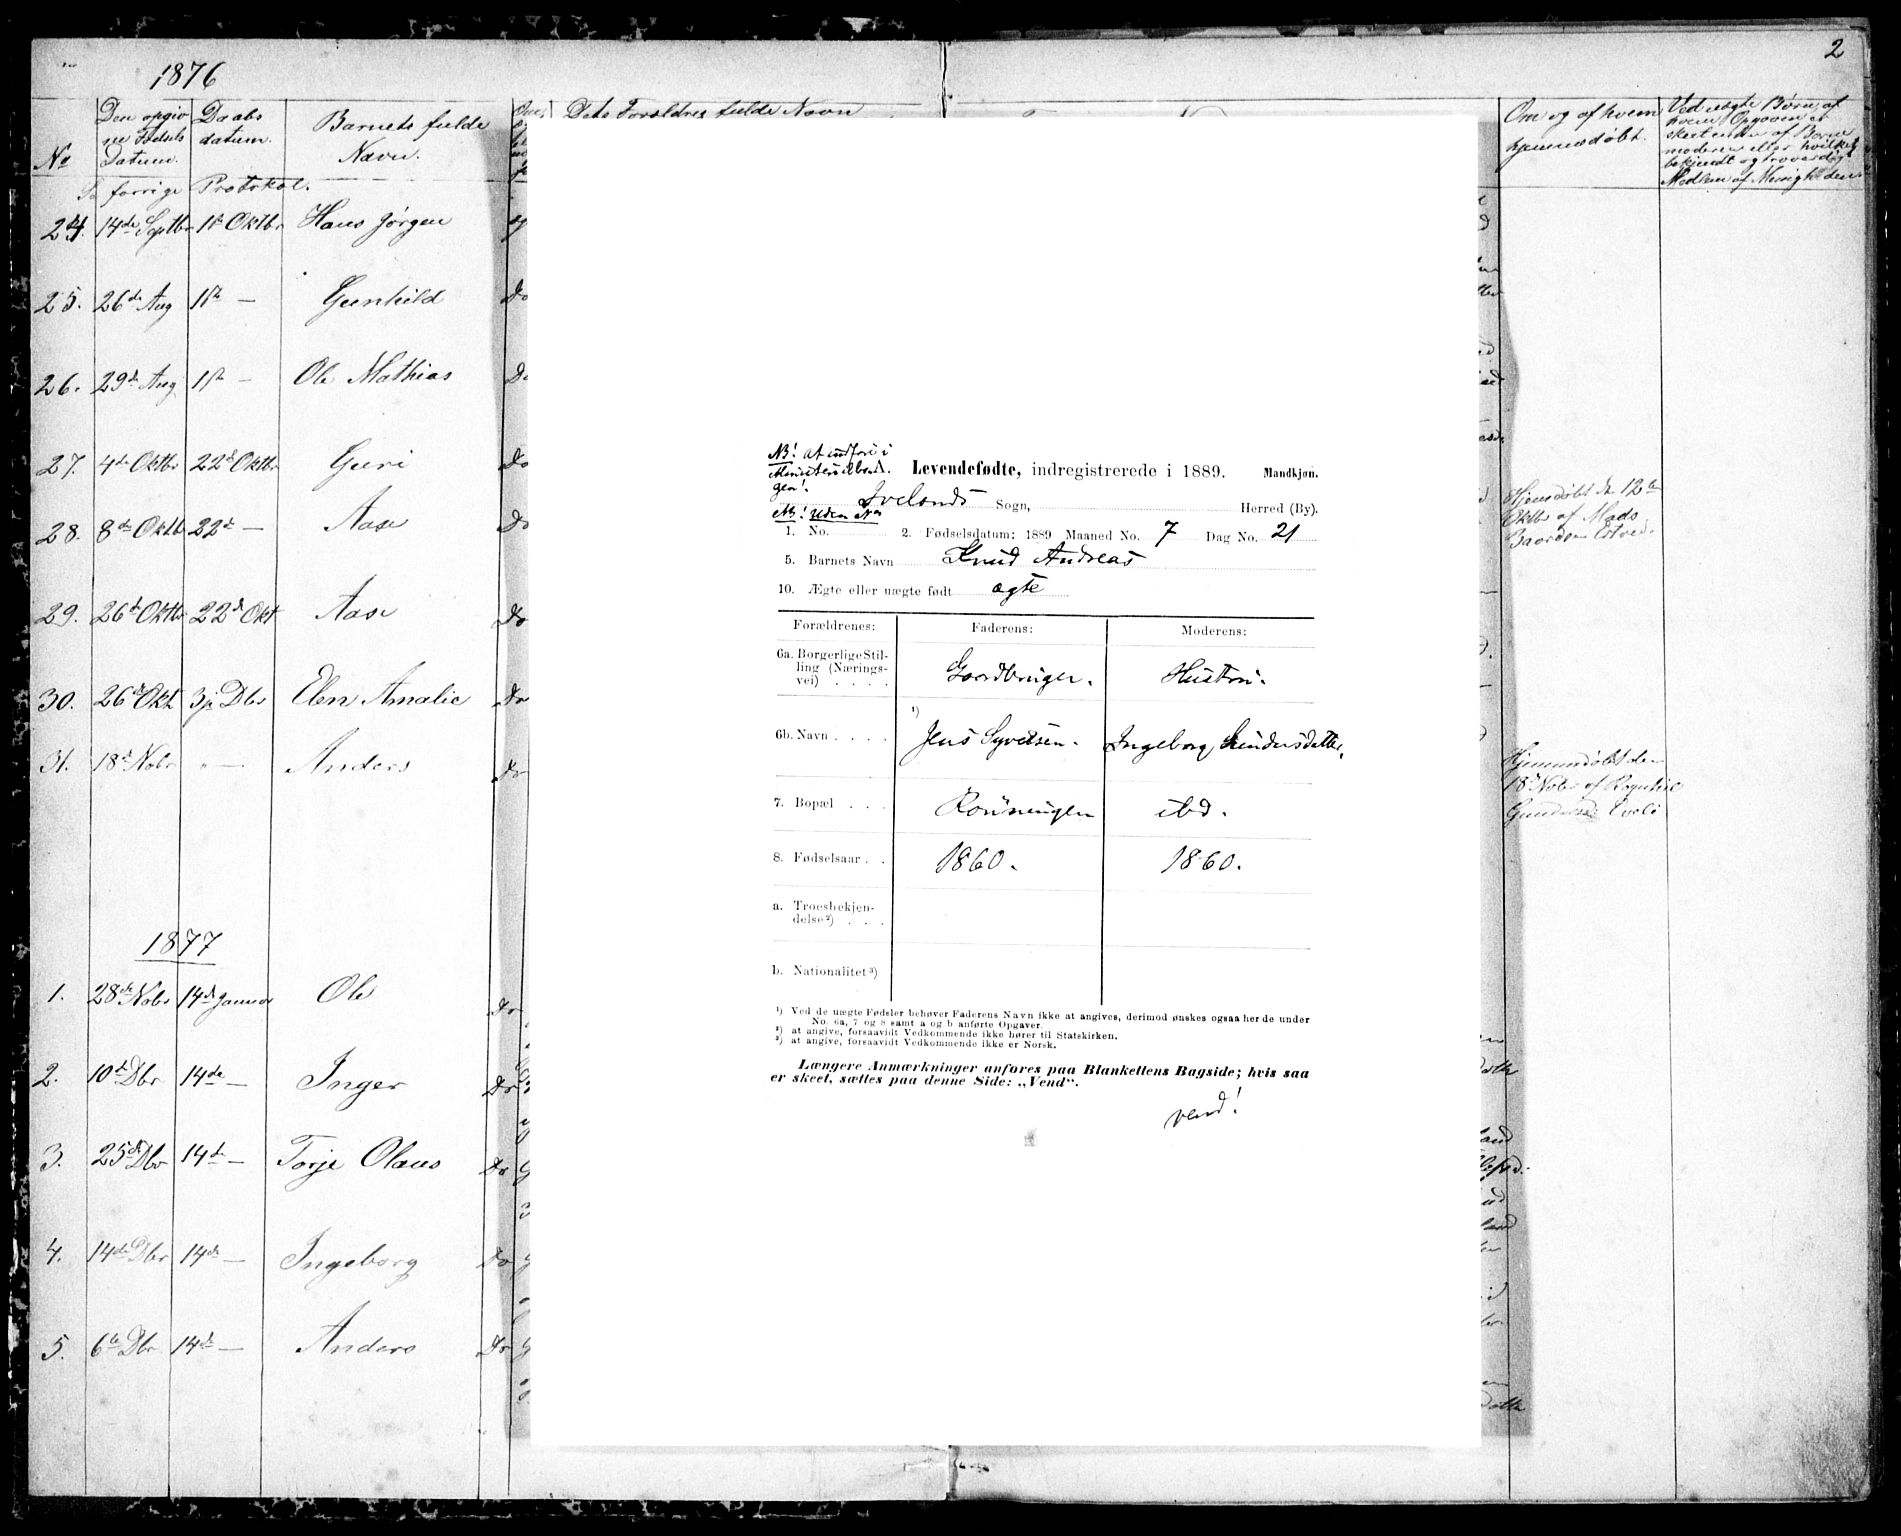 1876
2
No
Den opgiv
ne Fødsels
Datum.
Daabs
datum.
Barnets fulde
Navn.
Dets Forældres fulde Navn
Om og af hvem
hjemmedøbt.
Ved uægte Børn, af
hvem Opgaven er
skeet enten af Barne
moderen eller hvilket
bekjendt og troværdigt
Medlem af Menigheden
forrige Protokol.
24. 14de Septbr 1ste Oktbr Hans Jørgen
25. 26de Aug 1ste — Gunhild Do
26. 29de Aug 1ste — Ole Mathias Do
27. 4de Oktbr 22de Oktbr Guri Do
28. 8de Oktb 22de — Aase Do
Hjemdøbt de 12te
Oktbr af Mads
29. 26de Oktbr 22de Okt Aase Do
30. 26de Okt 3je Dbr Elen Amalie Do
31. 18de Nobr " — Anders Do
Hjemmedøbt den
18de Nobr af
1877
1. 28de Nobr 14de Januar Ole Do
2. 10de Dbr 14de — Inger Do
3. 25de Dbr 14de — Torje Olaus Do
4. 14de Dbr 14de — Ingeborg Do
5. 6te Dbr 14de — Anders Do
NB! at indføre i
Ministerialbo-
gen!
A. Levendefødte, indregistrerede i 1889. Mandkjøn.
Ivelands Sogn, Herred (By).
NB! uden No
1. No. 2. Fødselsdatum: 1889 Maaned No. 7 Dag No. 21
5. Barnets Navn Knud Andreas
10. Ægte eller uægte født ægte
Forældrenes: Faderens: Moderens:
6a. Borgerlige Stil-
ling (Nærings-
vei) . . . . Gaardbruger. Hustru.
6b. Navn . . . . ¹) Jens Syvertsen. Ingeborg Gundersdatter.
7. Bopæl . . . Rønningen ibd.
8. Fødselsaar . . 1860. 1860.
a. Troesbekjen-
delse ²) . . .
b. Nationalitet ³)
¹) Ved de uægte Fødsler behøver Faderens Navn ikke at angives, derimod ønskes ogsaa her de under
No. 6a, 7 og 8 samt a og b anførte Opgaver.
²) at angive, forsaavidt Vedkommende ikke hører til Statskirken.
³) at angive, forsaavidt Vedkommende ikke er Norsk.
Længere Anmærkninger anføres paa Blankettens Bagside; hvis saa
er skeet, sættes paa denne Side: „Vend".
vend!